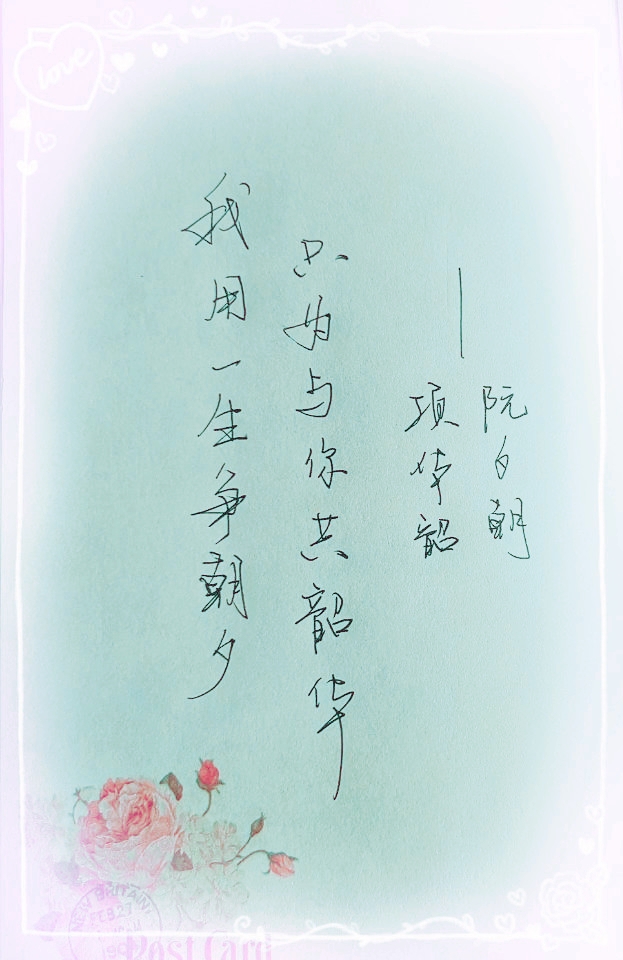 love
我用一生争朝夕
只为与你共韶华
——
阮夕朝
项华韶
NEW BRITAIN
Post Card